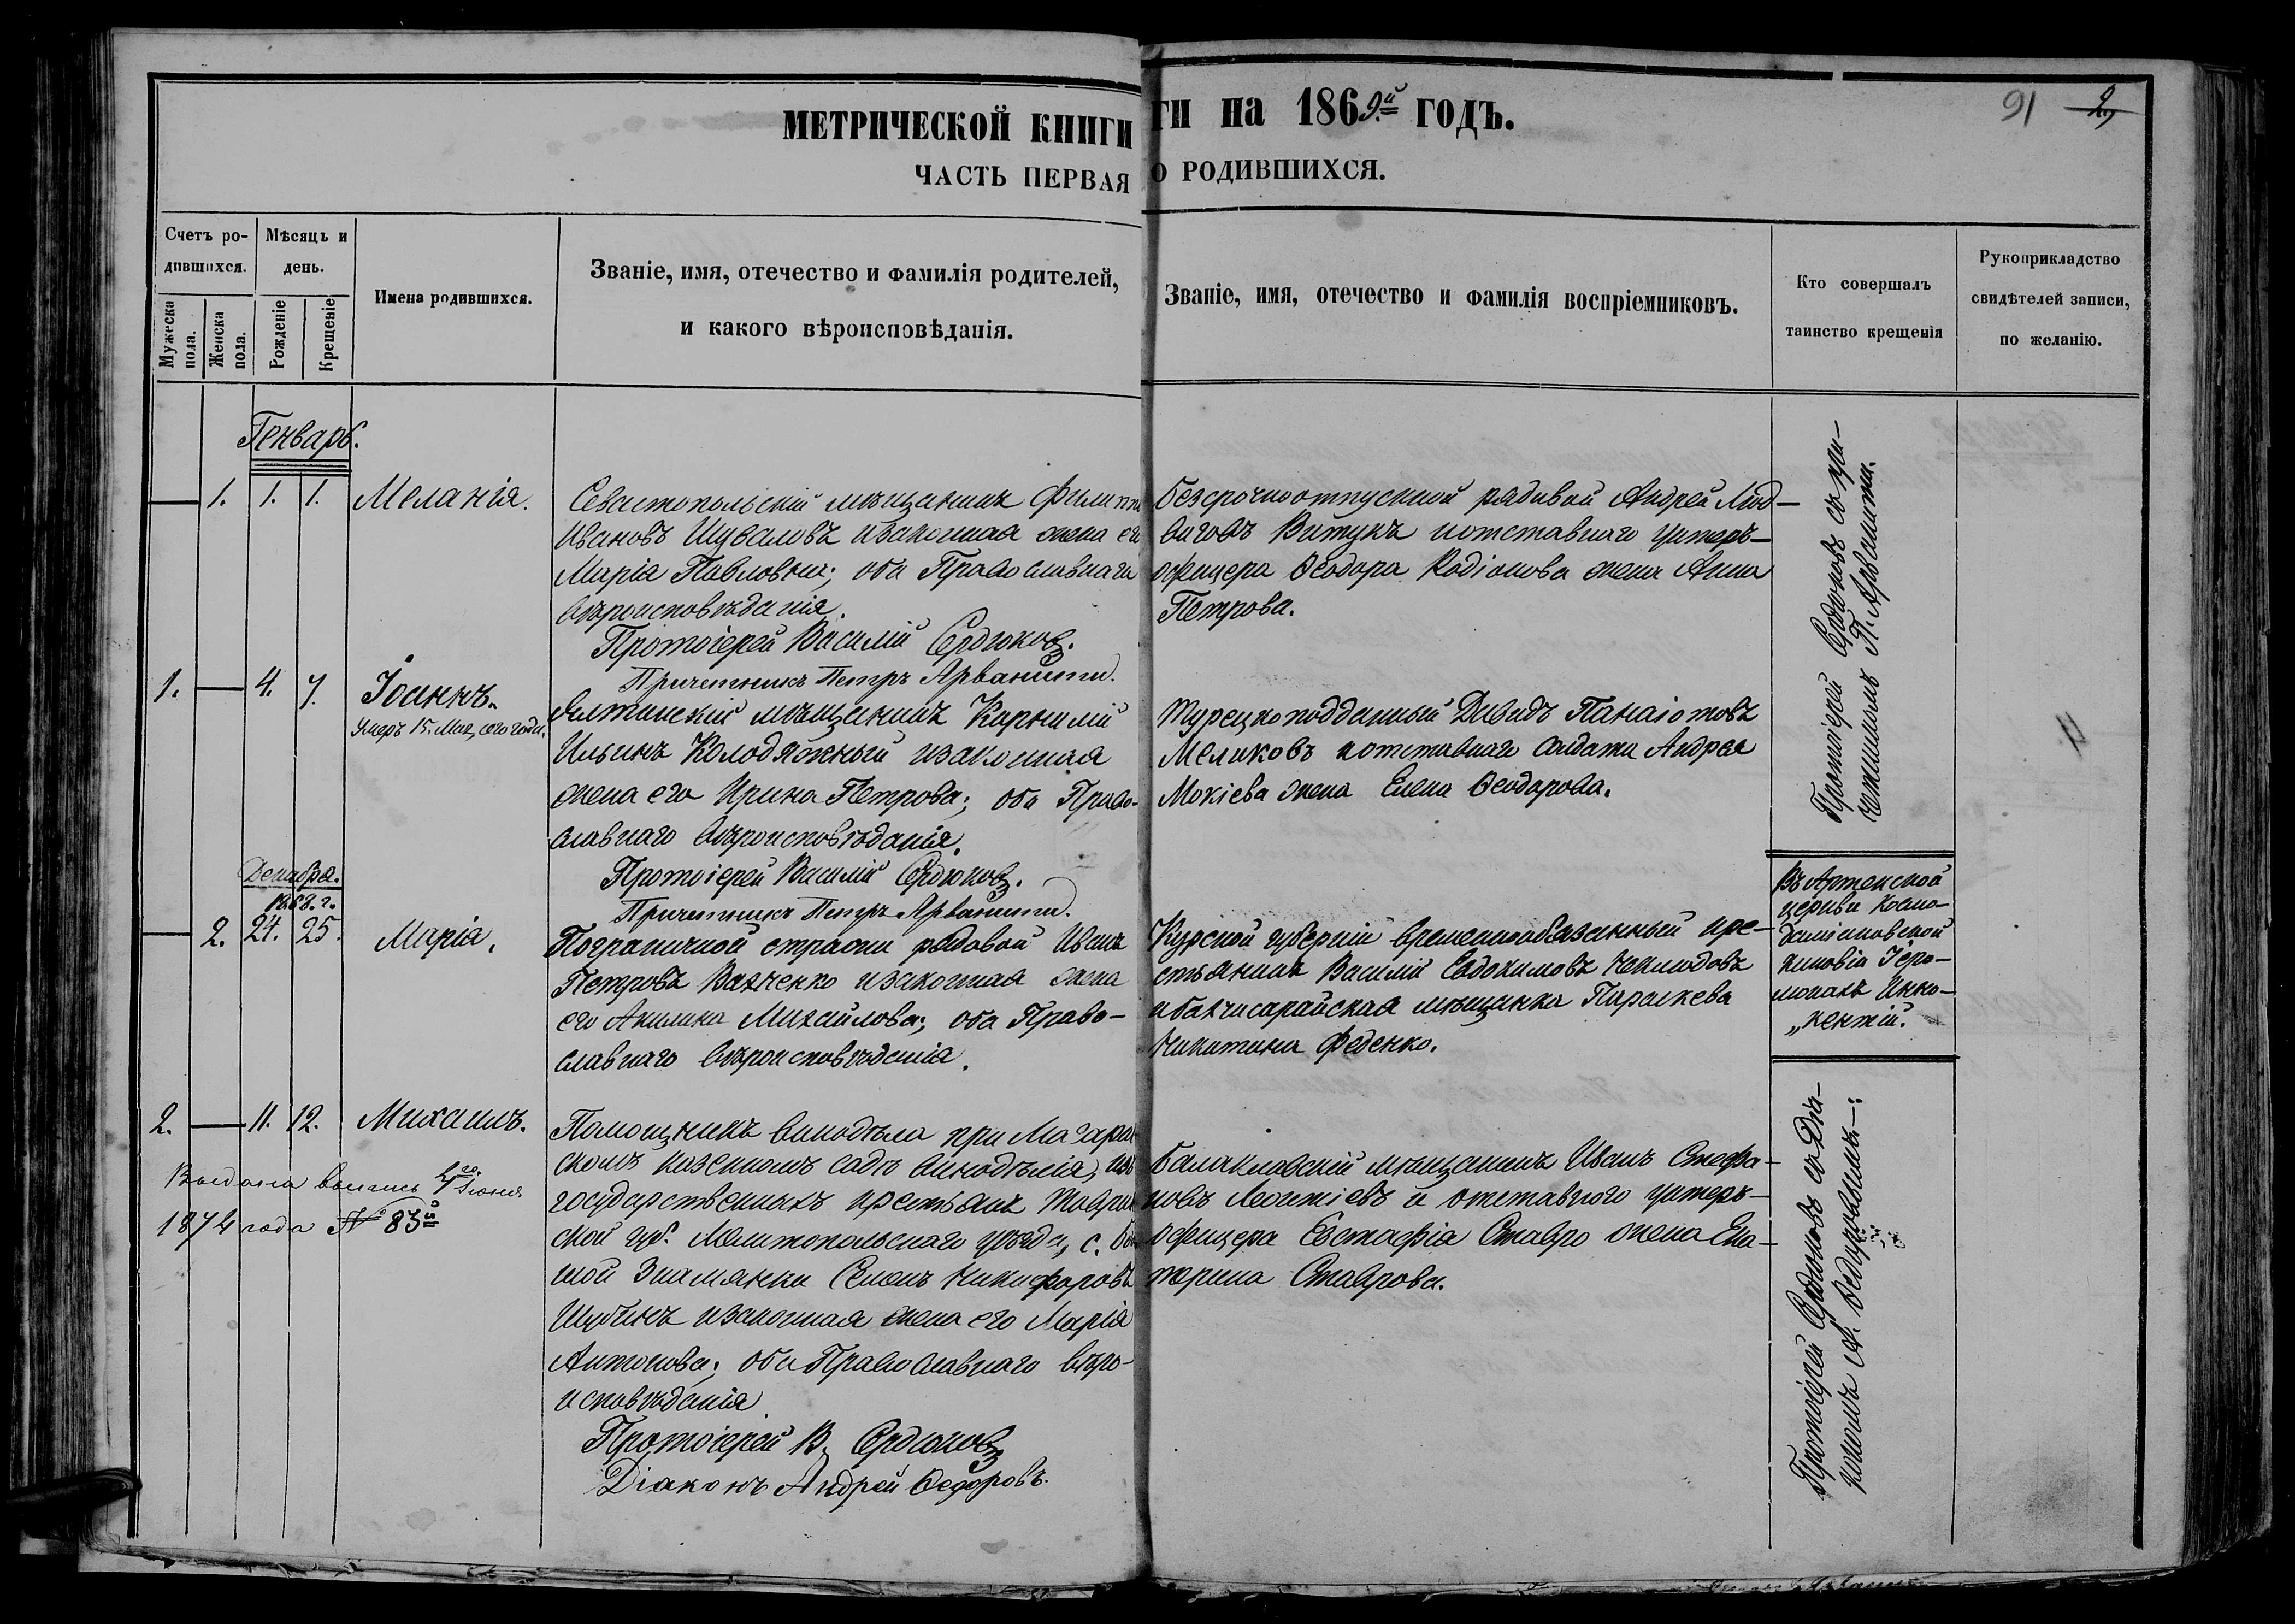 МЕТРИЧЕСКОЙ КНИГИ
ГИ на 1869й ГОДЪ.
91 2
ЧАСТЬ ПЕРВАЯ
О РОДИВШИХСЯ.
Счетъ ро-
дившихся.
Мужеска пола.
Женска пола.
Мѣсяцъ и
день.
Рожденіе
Крещеніе
Имена родившихся.
Званіе, имя, отечество и фамилія родителей,
и какого вѣроисповѣданія.
Званіе, имя, отечество и фамилія воспріемниковъ.
Кто совершалъ
таинство крещенія
Рукоприкладство
свидѣтелей записи,
по желанію.
Генварь.
1. 1. 1. Меланія.
Севастопольскій мѣщанинъ Филиппъ
Ивановъ Шуваловъ изаконная жена его
Марія Павловна; оба Православнаго
вѣроисповѣданія.
Протоіерей Василій Сердюковъ.
Причетникъ Петръ Арванити.
безсрочноотпускной рядовой Андрей Люд-
виговъ Витукъ иотставнаго унтеръ-
офицера Ѳеодора Родіонова жена Анна
Петрова.
Протоіерей Сердюковъ съ при-
четникомъ П. Арванити.
1. 4. 7. Іоаннъ.
Умеръ 15. Мая, сего года.
Ялтинскій мѣщанинъ Корнилій
Ильинъ Колодяжный изаконная
жена его Ирина Петрова; оба Право-
славнаго вѣроисповѣданія.
Протоіерей Василій Сердюковъ.
Причетникъ Петръ Арванити.
Турецкоподданный Давидъ Панаіотовъ
Меликовъ иотставнаго солдата Андрея
Мокіева жена Елена Ѳеодорова.
Декабря.
1868. г.
2. 24. 25. Марія.
Пограничной стражи рядовой Иванъ
Петровъ Вахненко изаконная жена
его Акилина Михайлова; оба Право-
славнаго вѣроисповѣданія.
Курской губерніи временнообязанный кре-
стьянинъ Василій Евдокимовъ Неклюдовъ
ибахчисарайская мѣщанка Параскева
Никитина Феденко.
Въ Артекской
церкви Космо-
даміановской
киновіи Іеро-
монахъ Инно-
„кентій.
2. 11. 12. Михаилъ.
Выдана выпись 4го Іюня
1874 года № 83й
Помощникъ винодѣла при Магарач
скомъ казенномъ садѣ винодѣлія, изъ
государственныхъ крестьянъ Таврич
ской губ. Мелитопольскаго уѣзда, с. Боль
шой Знамянки Семенъ Никифоровъ
Шубинъ изаконная жена его Марія
Антонова; оба Православнаго вѣро-
исповѣданія
Протоіерей В. Сердюковъ
Діаконъ Андрей Ѳедоровъ.
балаклавскій мѣщанинъ Иванъ Стефа-
новъ Леонтіевъ и отставного унтеръ-
офицера Евстафія Ставро жена Ека-
терина Ставрова.
Протоіерей Сердюковъ съ Діа-
кономъ А. Ѳедоровымъ.